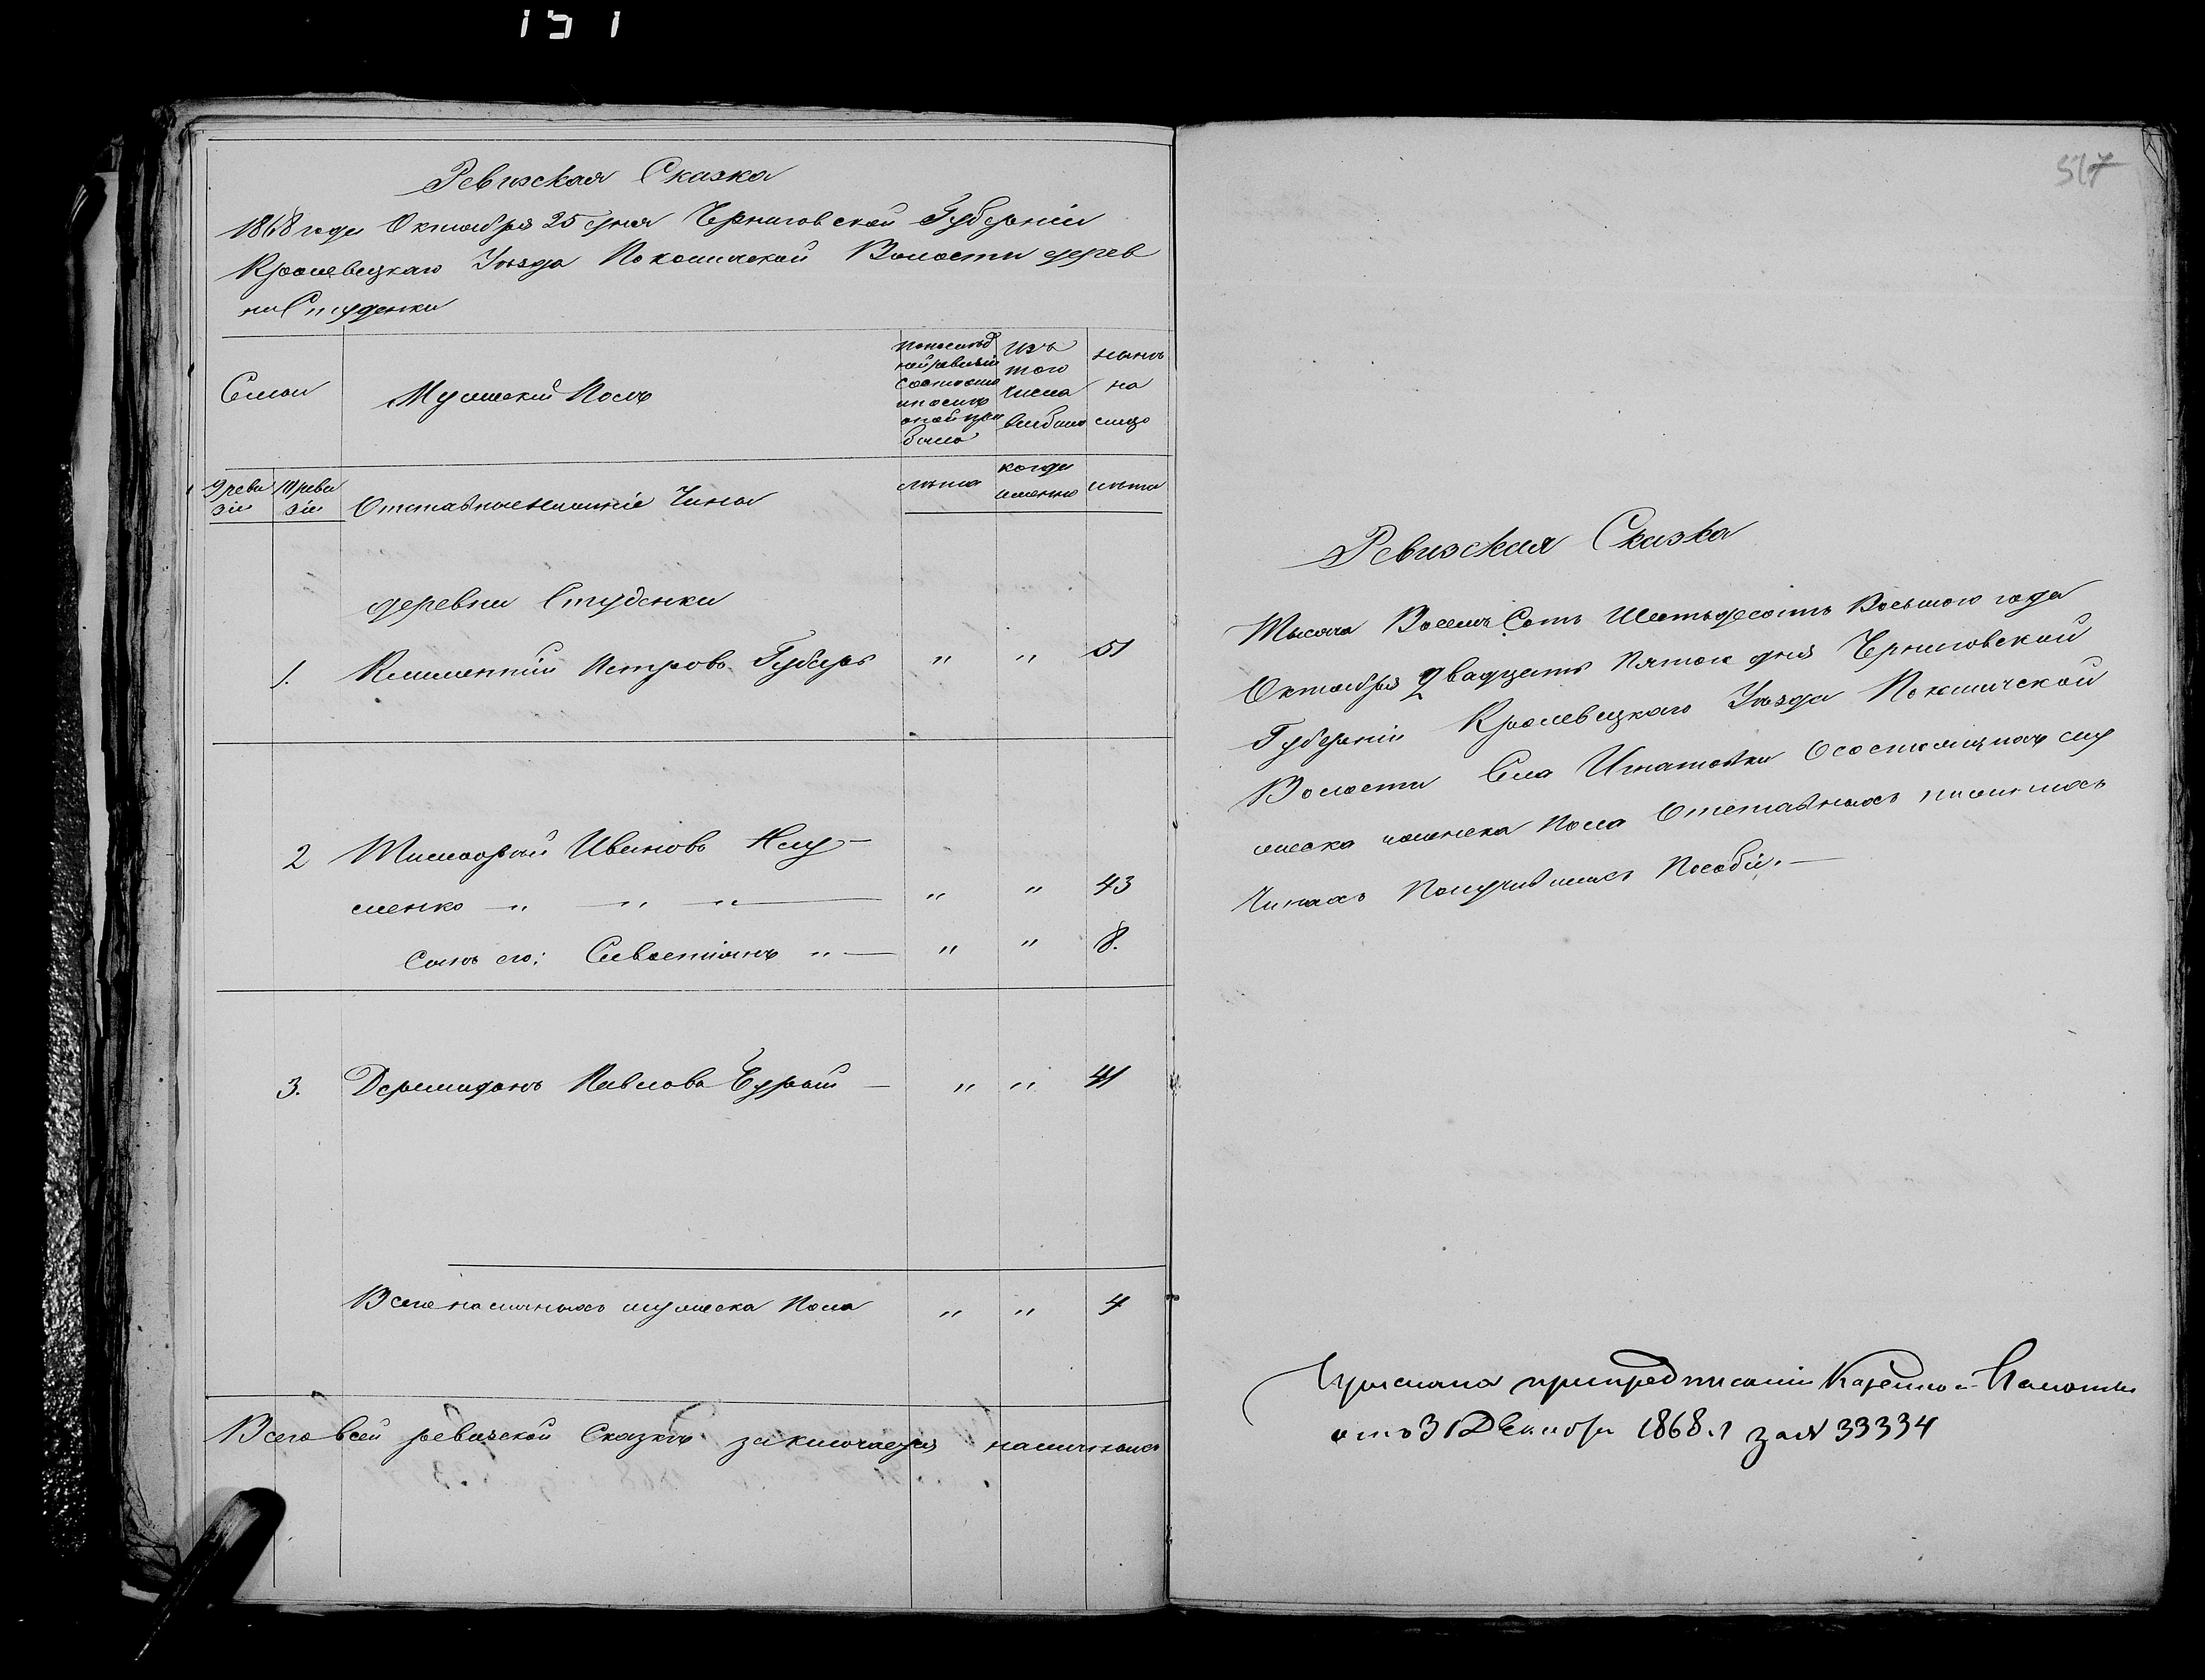 151
Ревизская Сказка
1868 года Октября 25 дня Черниговской Губерніи
Кролевецкаго Уезда Покошичской Волости дерев
ни Студенки
Семьи
Мужескій Полъ
По послед
ней ревизіи
состояло
и после
оной при
было
Изъ
того
числа
выбыло
ныне
на
лицо
9 реви
зіи
10 реви
зіи
Отставные нижніе Чины
лета
когда
именно
лета
деревни Студенки
1. Климентій Петровъ Губарь " " 51
2 Тимофей Ивановъ
менко — " — " — " — " " 43
Сынъ его: Севастіянъ " — " " 8.
3. Павловъ — " " 41
Всего наличныхъ мужеска Пола " " 4
Всего в сей ревизской Сказке заключается наличныхъ
517
Ревизская Сказка
Тысяча Восемь Сотъ Шестьдесятъ Восьмого года
Октября Двадцать Пятого дня Черниговской
Губерніи Кролевецкаго Уезда Покошичской
Волости Села Игнатовки О состоящихъ му
жеска и женска Пола Отставныхъ нижнихъ
Чинахъ Получившихъ Пособіи. —
Прислана при предписаніи Казенной Палаты
отъ 31 Декабря 1868 г за № 33334